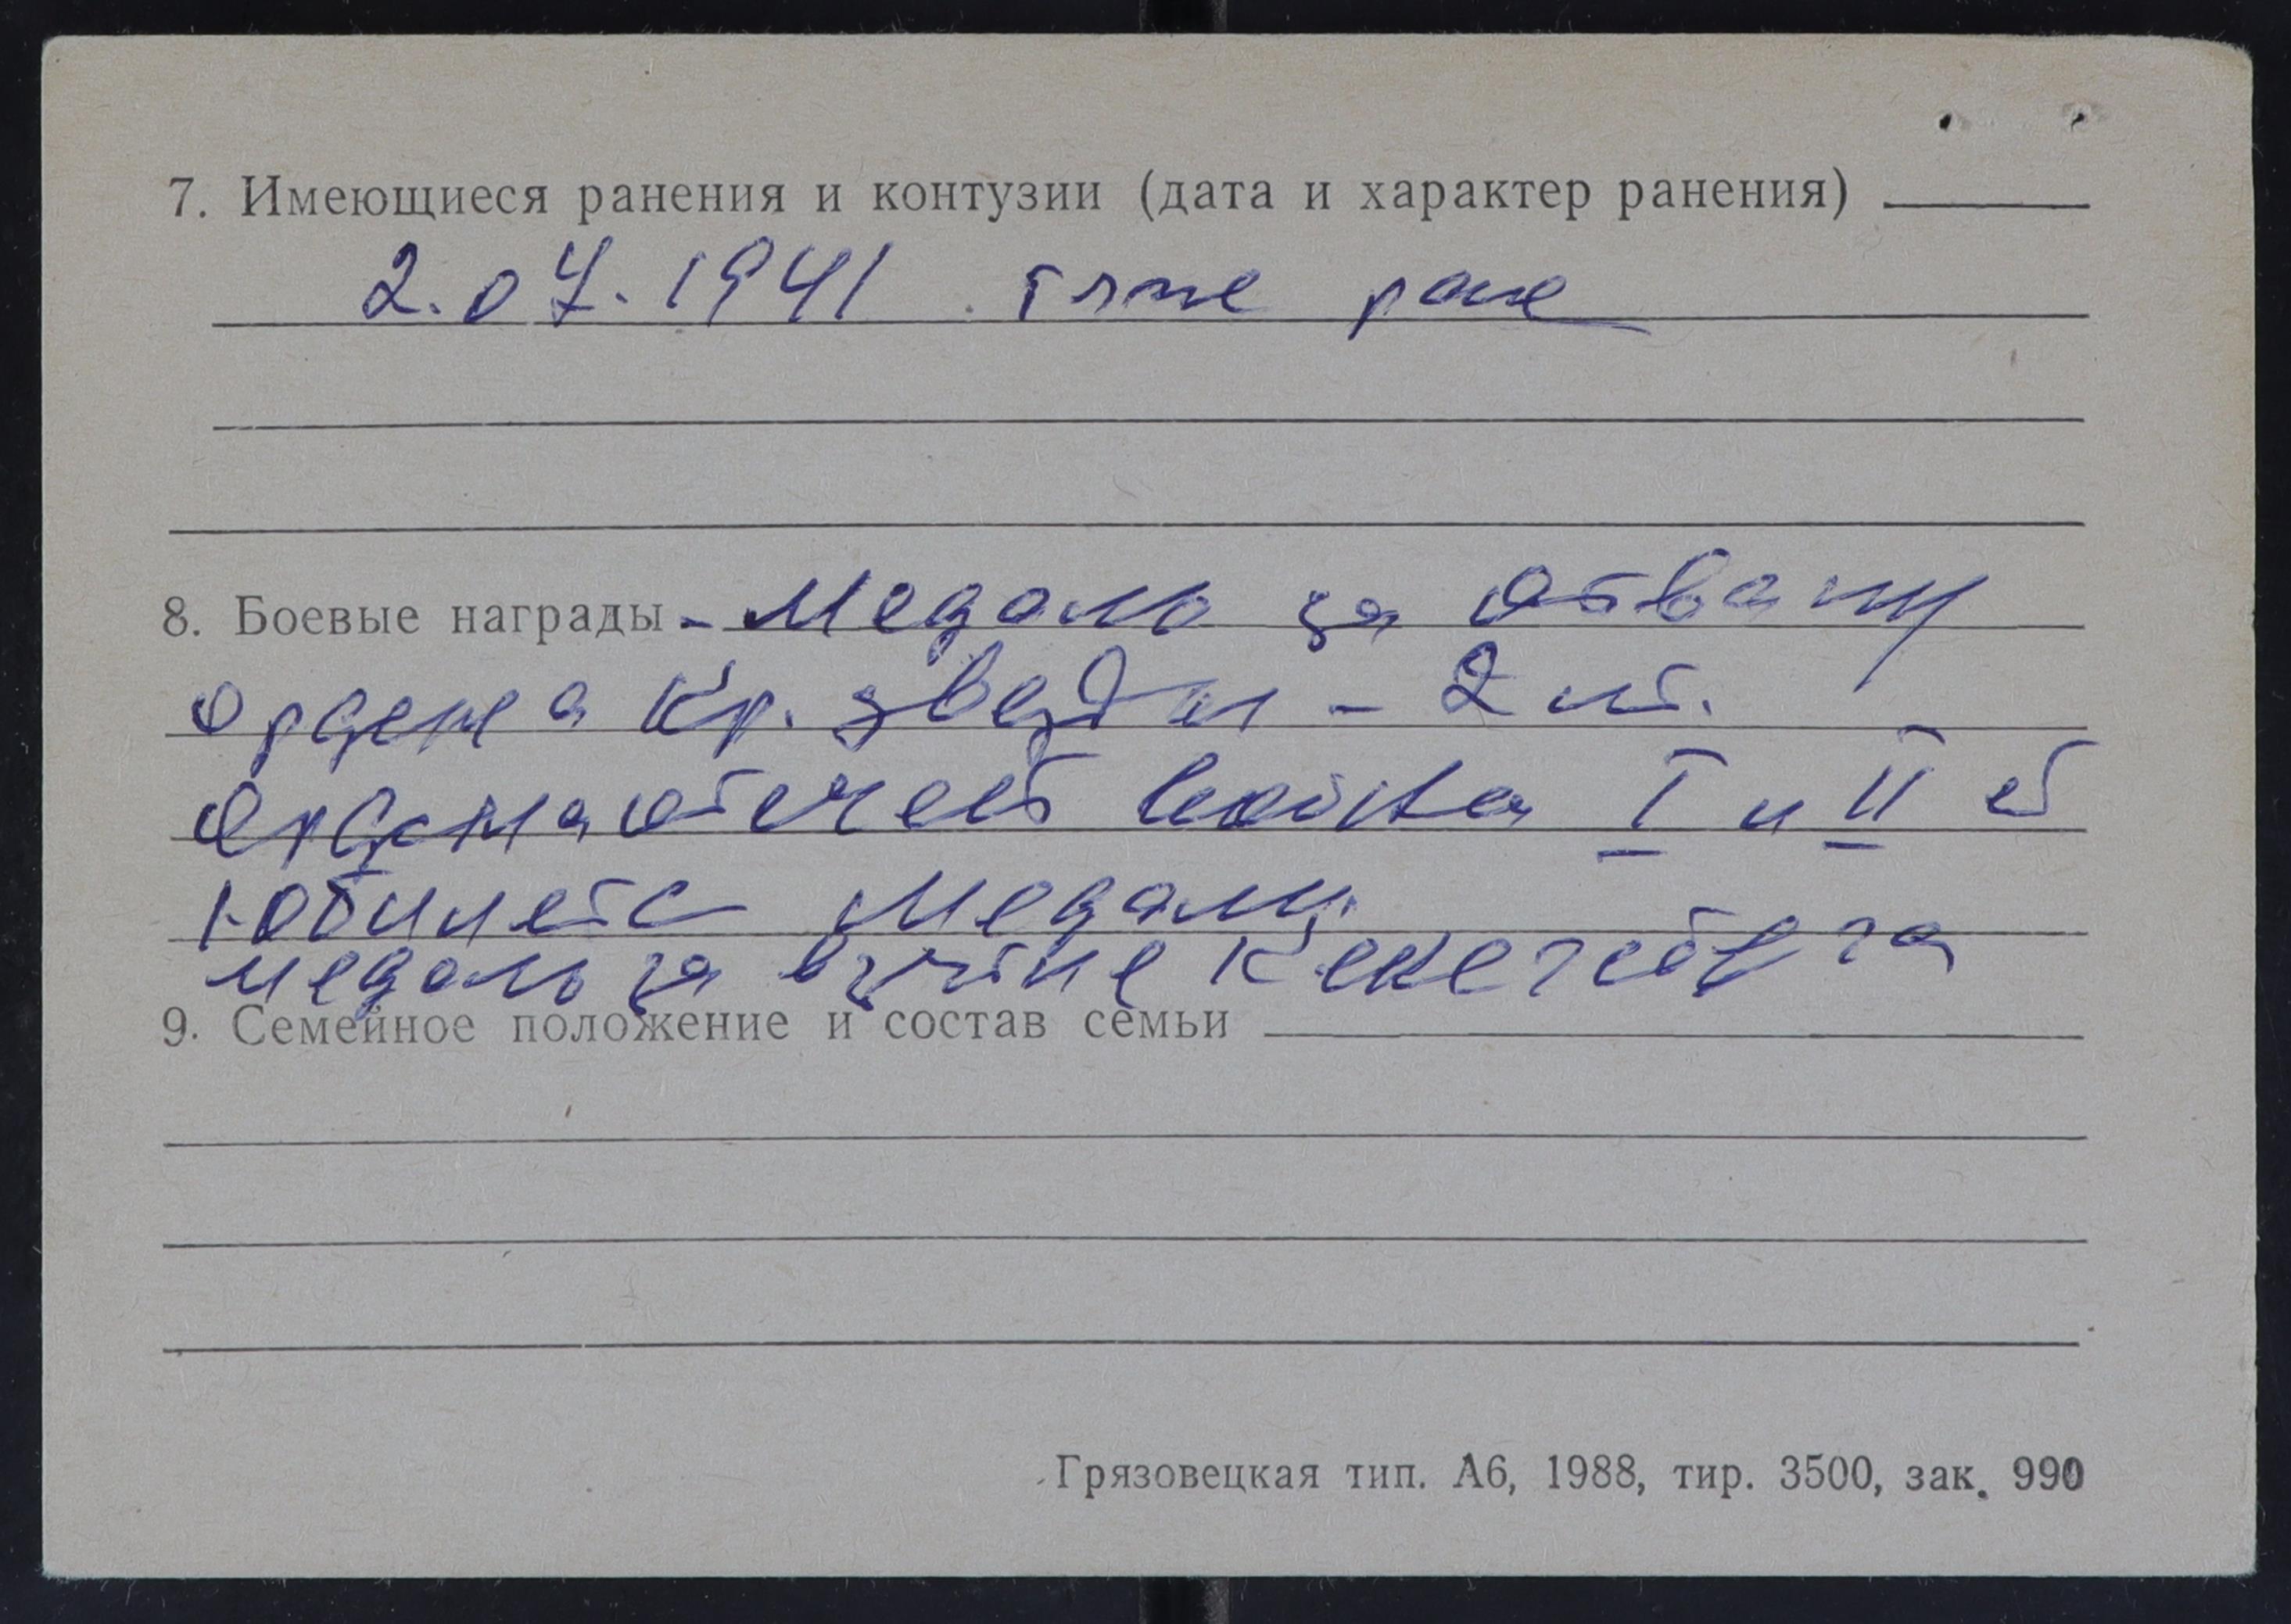 7. Имеющиеся ранения и контузии (дата и характер ранения)
2.07.1941 тяже ране
8. Боевые награды - Медаль за отвагу
Ордена Кр. звезды - 2 шт.
Ордена отечест война I и II ст
Юбилейс медали.
медаль за взятие Кенегсбрга
9. Семейное положение и состав семьи
Грязовецкая тип. А6, 1988, тир. 3500, зак. 990